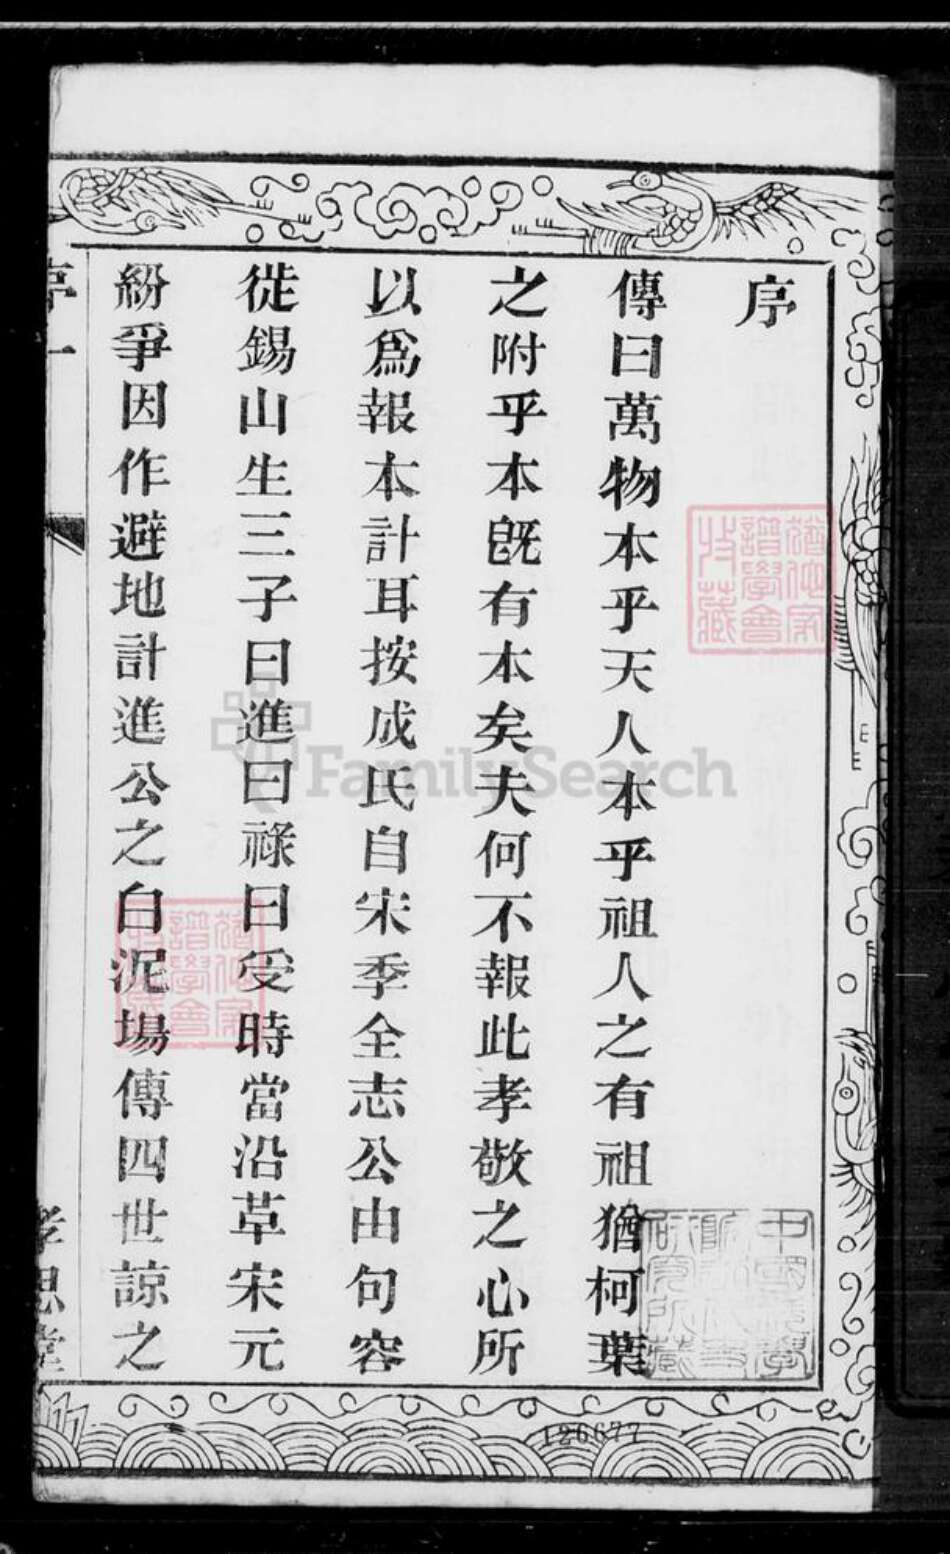 序
傳曰萬物本乎天人本乎祖人之有祖猶柯葉
之附乎本旣有本矣夫何不報此孝敬之心所
以爲報本計耳按成氏自宋季全志公由句容
徙錫山生三子曰進曰祿曰受時當沿革宋元
紛爭因作避地計進公之白泥場傳四世諒之
序一
孝思堂
126677
FamilySearch